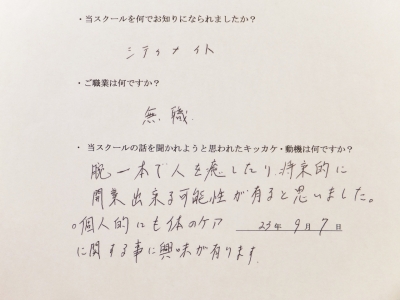 ・当スクールを何でお知りになられましたか？
シティナイト
・ご職業は何ですか？
無職
・ 当スクールの話を聞かれようと思われたキッカケ・動機は何ですか？
腕一本で人を癒したり、将来的に
開業出来る可能性が有ると思いました。
○個人的にも体のケア
23年 9月 7日
に関する事に興味が有ります。